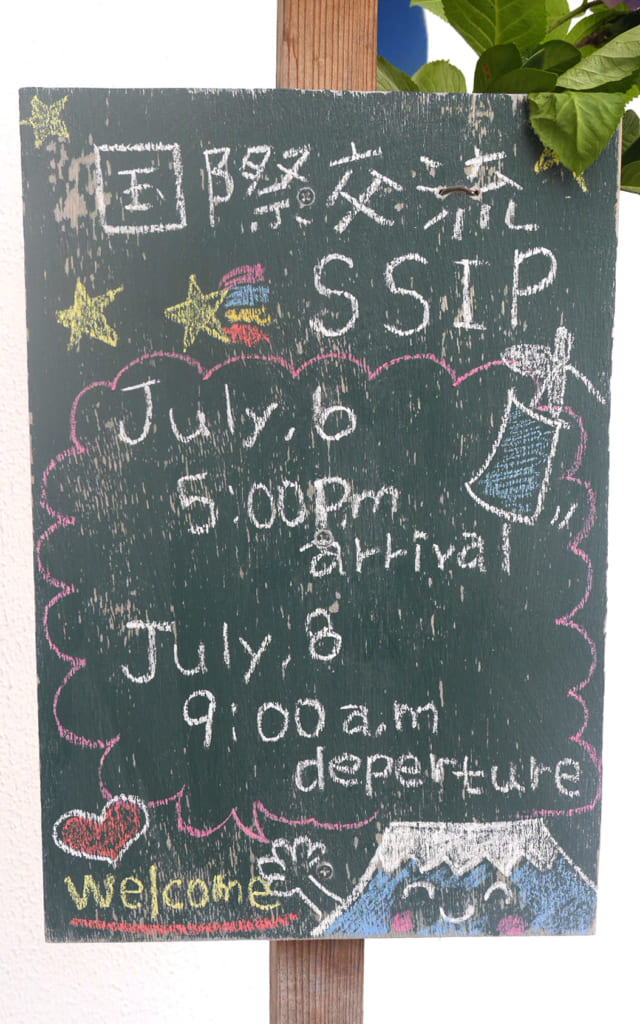 国際交流
SSIP
July, 6
5:00 P.m
arrival
July, 8
9:00 a.m
deperture
welcome